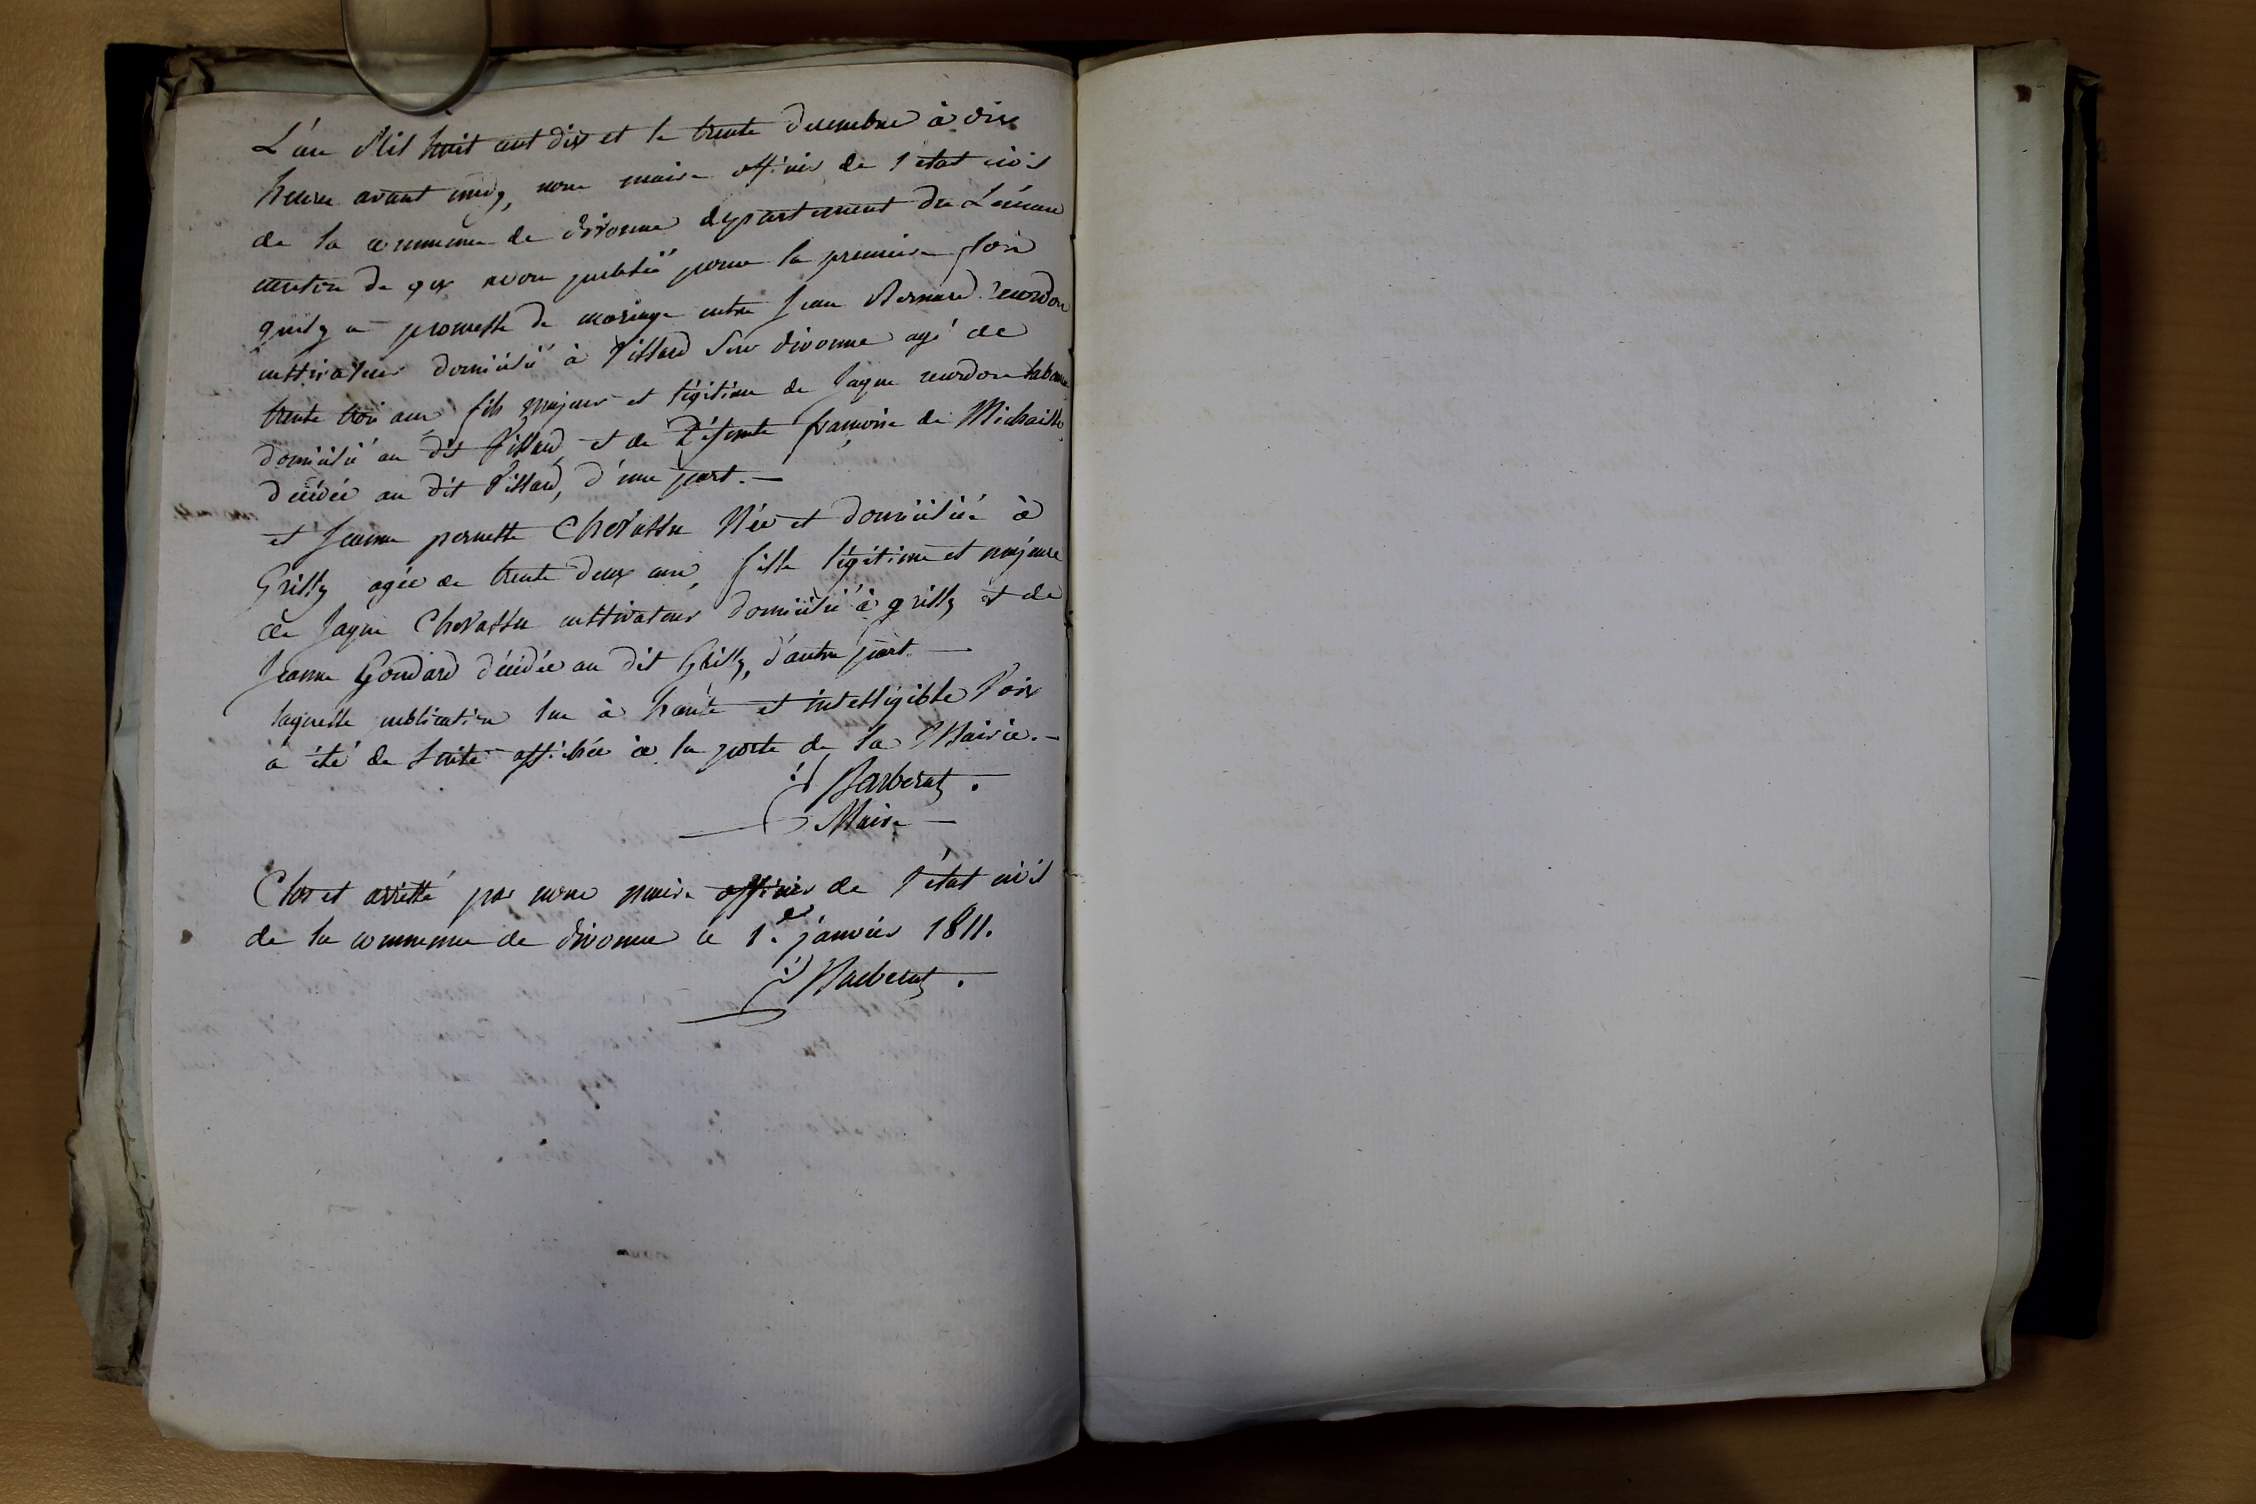 L'an Mil huit cent dix et le trente decembre à dix
heures avant midy, nous maire officier de l'etat civil
de la commune de divonne departement du Léman
canton de gex avons publié pour la premiere fois
quil y a promesse de mariage entre Jean Bernard
cultivateur domicilié à Villard sur divonne agé de
trente trois ans fils majeur et légitime de Jaque
domicilié au dit Villard, et de Défunte françoise de Michaille,
décédée au dit Villard, d'une part. —
et Jeanne pernette Chevassu Née et domiciliée à
Grilly agée de trente deux ans, fille légitime et majeure
de Jaque Chevassu cultivateur domicilié à grilly et de
Jeanne Goudard décédée au dit Grilly, d'autre part. —
laquelle publication lue à haute et intelligible Voix
a été de suite affichée à la porte de la Mairie. —
Barberat.
Maire —
Clos et arretté par nous maire officier de l'état civil
de la commune de divonne le 1.er janvier 1811.
Barberat.